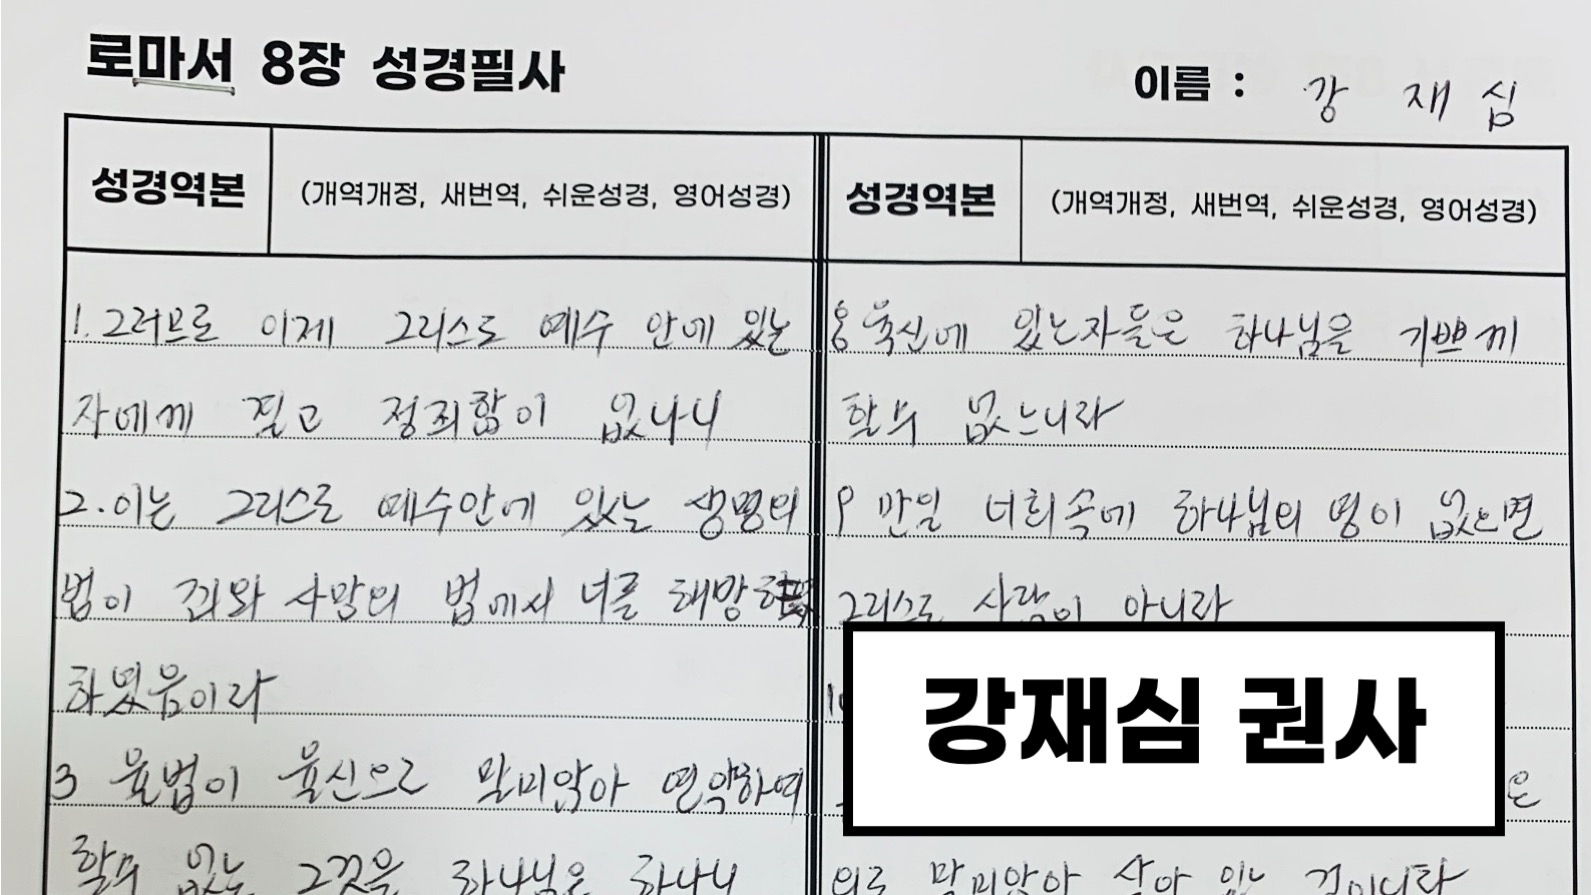 로마서 8장 성경필사
이름 : 강 재 심
성경역본 (개역개정, 새번역, 쉬운성경, 영어성경)
1. 그러므로 이제 그리스도 예수 안에 있는
자에게 결코 정죄함이 없나니
2. 이는 그리스도 예수안에 있는 생명의
법이 죄와 사망의 법에서 너를 해방
하였음이라
3 율법이 육신으로 말미암아 연약하여
할수 없는 그것을 하나님은 하나니
성경역본 (개역개정, 새번역, 쉬운성경, 영어성경)
8 육신에 있는자들은 하나님을 기쁘게
할수 없느니라
9 만일 너희속에 하나님의 영이 없으면
그리스도 사람이 아니라
은
의로 말미암아 살아 있는 것이니라
강재심 권사